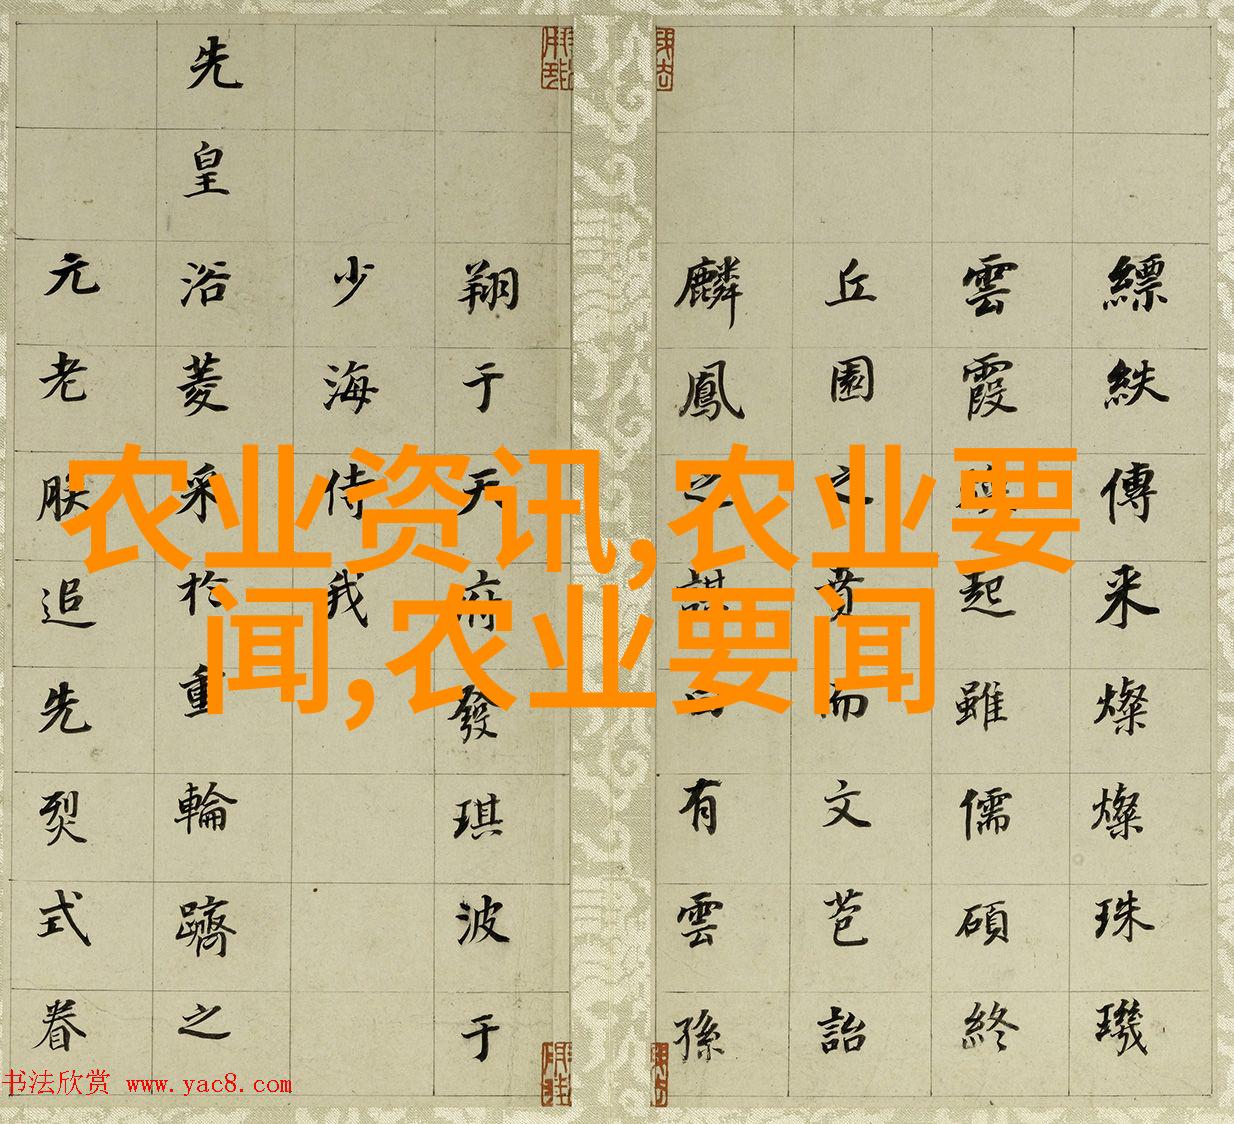 縹紩傳来燦燦珠璣
雲霞起雖儒碩終
丘園之賁而文芑詒
麟鳳之謀有雲孫
翔于天府發琪波于
少海侍我
先皇浴菱采於重輪躋之
元老朕追先烈式眷
农业资讯,农业要
闻,农业要闻
书法欣赏 www.yac8.com